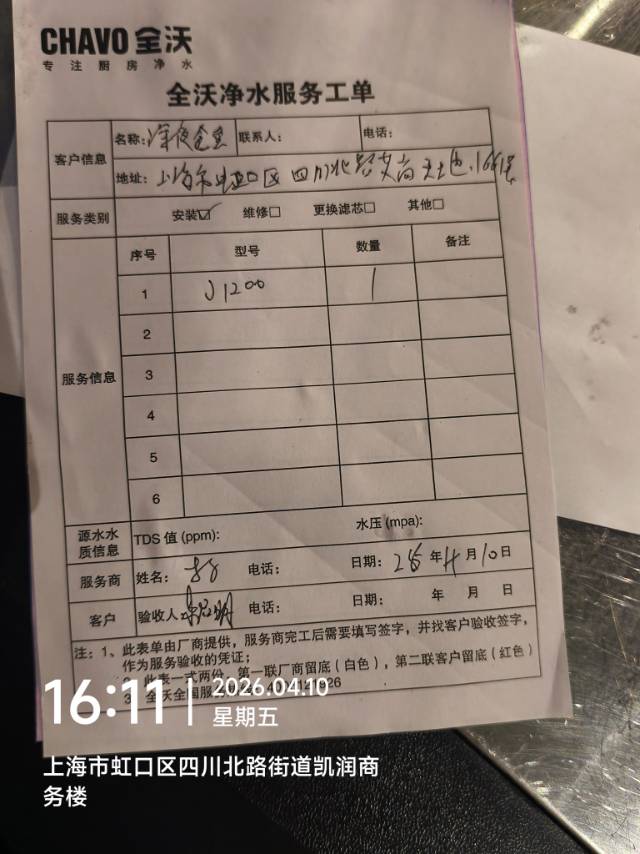 CHAVO 全沃
专注厨房净水
全沃净水服务工单
客户信息
名称:深夜食堂 联系人: 电话:
地址:上海市虹口区四川北路 天地 166
服务类别 安装☑ 维修□ 更换滤芯□ 其他□
服务信息
序号 型号 数量 备注
1 J1200 1
2
3
4
5
6
源水水质信息 TDS 值 (ppm): 水压 (mpa):
服务商 姓名: 电话: 日期: 年 4 月 10 日
客户 验收人: 明 电话: 日期: 年 月 日
注:1、此表单由厂商提供,服务商完工后需要填写签字,并找客户验收签字,
作为服务验收的凭证;
2、此表一式两份,第一联厂商留底(白色),第二联客户留底(红色)
3、全沃全国服
16:11 2026.04.10
星期五
上海市虹口区四川北路街道凯润商
务楼